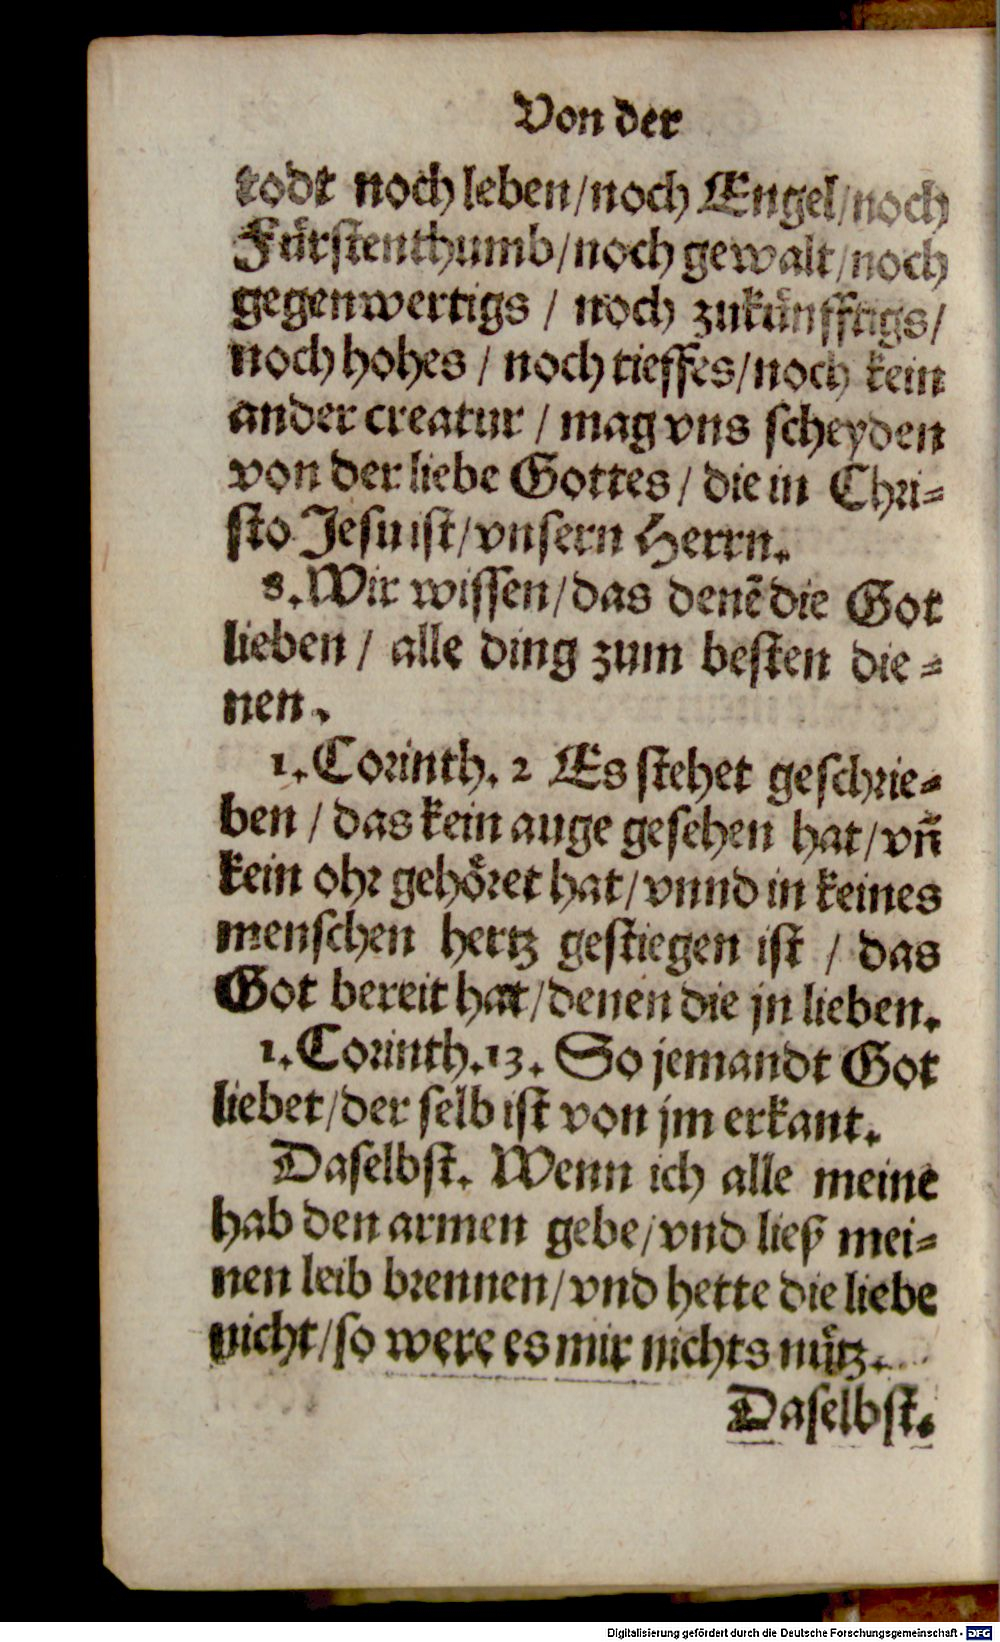 Von der
todt noch leben/noch Engel/noch
Fürstenthumb/noch gewalt/noch
gegenwertigs / noch zukünfftigs/
noch hohes / noch tieffes/noch kein
ander creatur / mag vns scheyden
von der liebe Gottes / die in Chri=
sto Jesu ist/vnsern Herrn.
8. Wir wissen/das denē die Got
lieben / alle ding zum besten die=
nen.
1. Corinth. 2 Es stehet geschrie=
ben / das kein auge gesehen hat/vn̄
kein ohr gehöret hat/vnnd in keines
menschen hertz gestiegen ist / das
Got bereit hat/denen die jn lieben.
1. Corinth. 13. So jemandt Got
liebet/der selb ist von jm erkant.
Daselbst. Wenn ich alle meine
hab den armen gebe/vnd ließ mei=
nen leib brennen/vnd hette die liebe
nicht/so were es mir nichts nütz.
Daselbst.
Digitalisierung gefördert durch die Deutsche Forschungsgemeinschaft - DFG